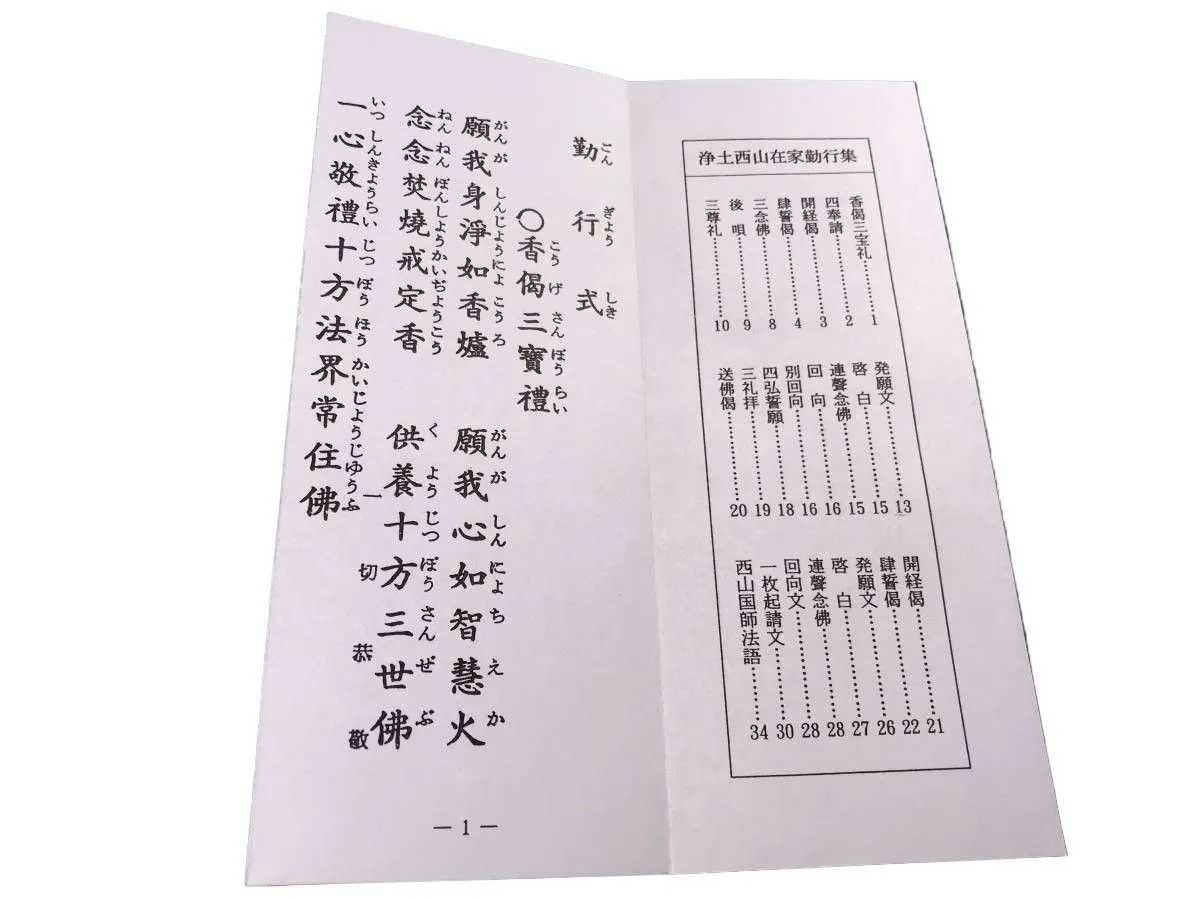 浄土西山在家勤行集
香偈三宝礼……1
四奉請……2
開経偈……3
肆誓偈……4
三念佛……8
後唄……9
三尊礼……10
発願文……13
啓白……15
連聲念佛……15
回向……16
別回向……16
四弘誓願……18
三礼拝……19
送佛偈……20
開経偈……21
肆誓偈……22
発願文……26
啓白……27
連聲念佛……28
回向文……28
一枚起請文……30
西山国師法語……34
勤行式
ごんぎようしき
○香偈三寶禮
こうげさんぼうらい
願我身淨如香爐 願我心如智慧火
がんがしんじようによこうろ がんがしんによちえか
念念焚燒戒定香 供養十方三世佛
ねんねんぼんしようかいぢようこう くようじつぽうさんぜぶ
一切恭敬
一心敬禮十方法界常住佛
いつしんきようらいじつぽうほうかいじようじゆうふ
― 1 ―